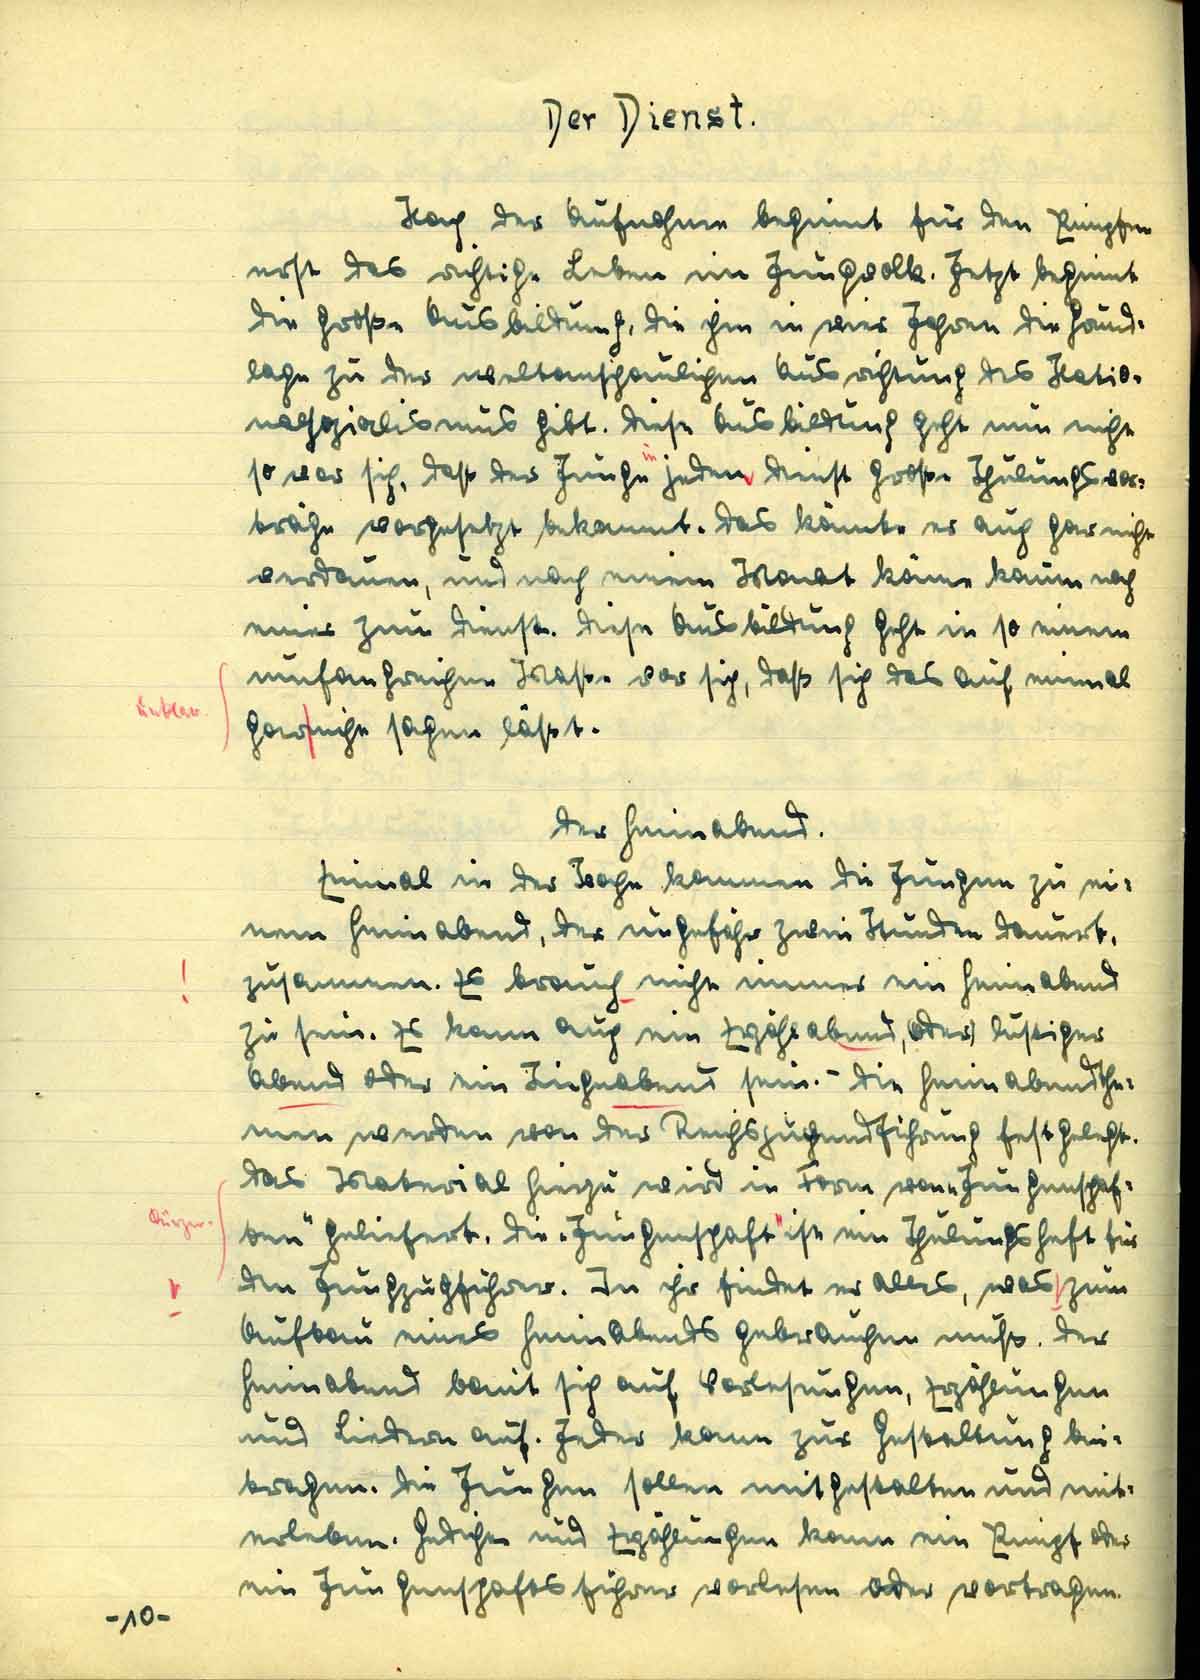 Der Dienst.
Nach der Aufnahme beginnt für den Pimpfen
erst das richtige Leben im Jungvolk. Jetzt beginnt
die große Ausbildung, die ihm in vier Jahren die Grund-
lage zu der weltanschaulichen Ausrichtung des Natio-
nalsozialismus gibt. Diese Ausbildung geht nun nicht
so vor sich, daß der Junge in jedem Dienst große Schulungsvor-
träge vorgesetzt bekommt. Das könnte er auch gar nicht
verdauen, und nach einem Monat käme kaum noch
einer zum Dienst. Diese Ausbildung geht in so einem
umfangreichen Maße vor sich, daß sich das auf einmal
unklar.
gar|nicht sagen läßt.
Der Heimabend.
Einmal in der Woche kommen die Jungen zu ei-
nem Heimabend, der ungefähr zwei Stunden dauert,
! zusammen. Es brauch nicht immer ein Heimabend
zu sein. Es kann auch ein Erzählabend, (oder) lustiger
Abend oder ein Singeabend sein. – Die Heimabendthe-
men werden von der Reichsjugendführung festgelegt.
Das Material hierzu wird in Form von „Jungenschaf-
kürzer.
ten" geliefert. Die „Jungenschaft" ist ein Schulungsheft für
den Jungzugführer. In ihr findet er alles, was zum
Aufbau eines Heimabends gebrauchen muß. Der
Heimabend baut sich auf Vorlesungen, Erzählungen
und Liedern auf. Jeder kann zur Gestaltung bei-
tragen. Die Jungen sollen mitgestalten und mit-
erleben. Gedichte und Erzählungen kann ein Pimpf oder
ein Jungenschaftsführer vorlesen oder vortragen.
-10-